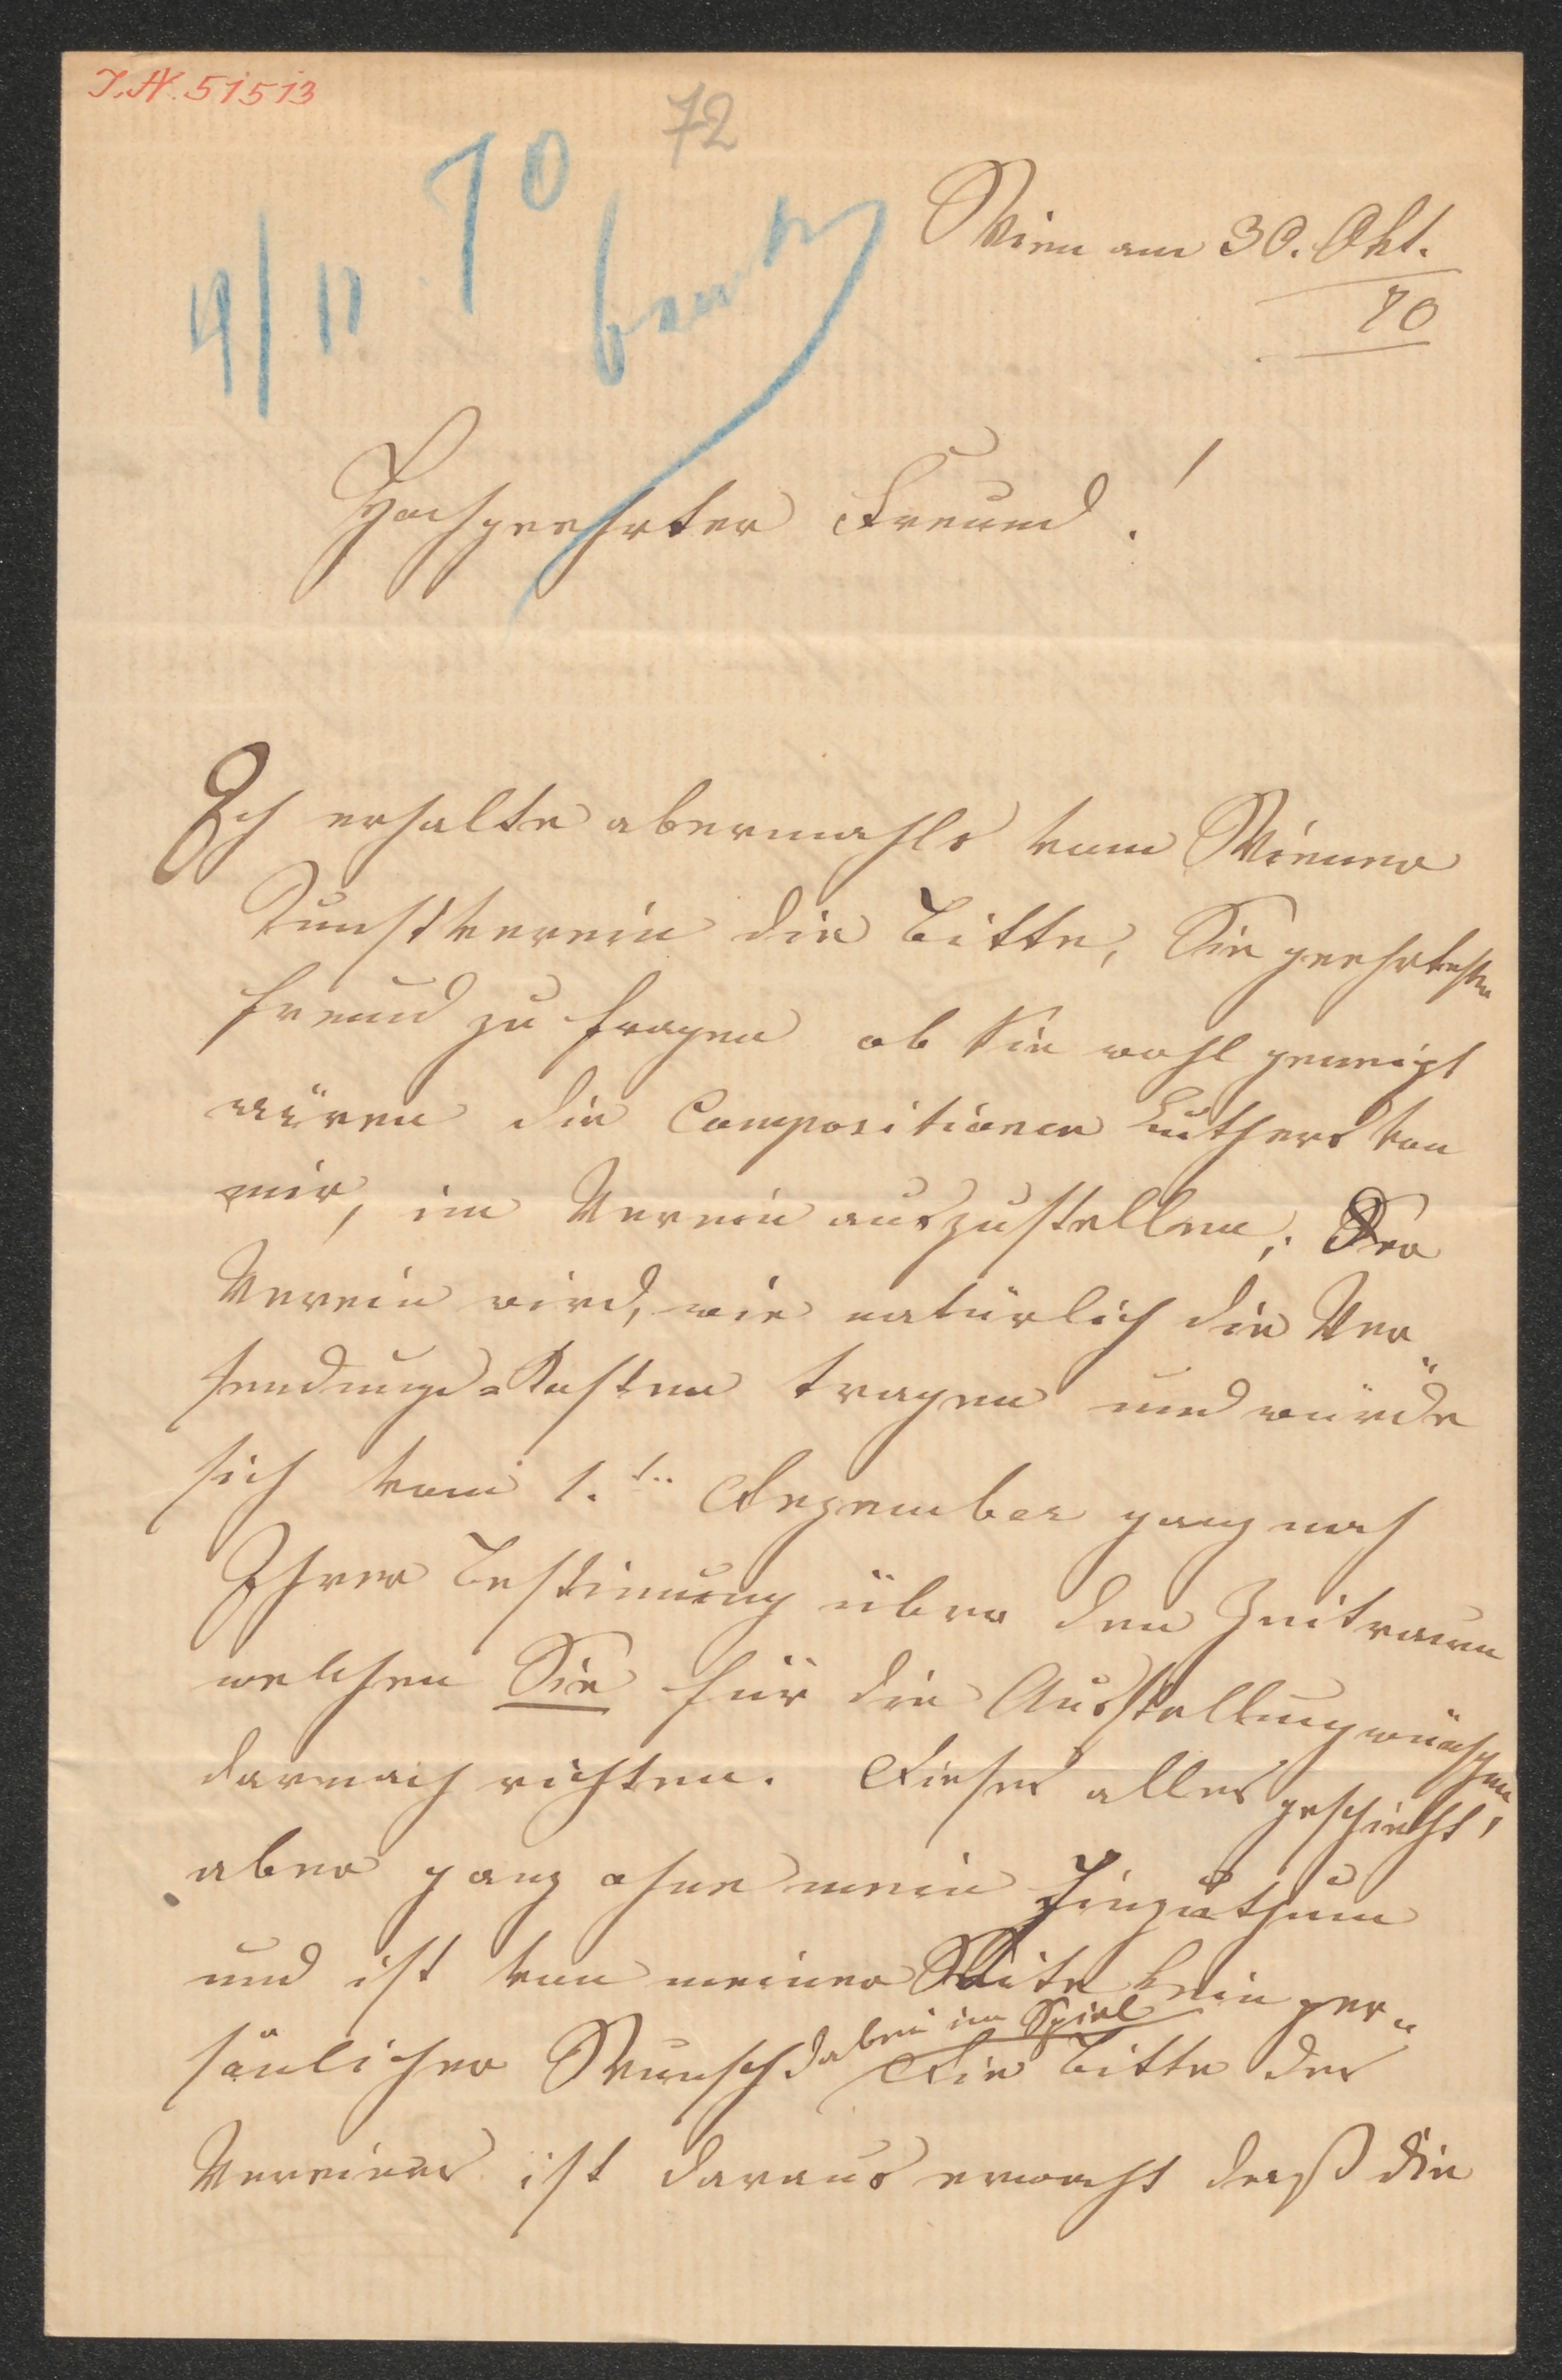 I.N. 51513
72
4/11 70
Wien am 30. Okt.
70
Hochgeehrter Freund!
Ich erhalte abermahls vom Wiener
Kunstverein die Bitte, Sie geehrtester
Freund zu fragen ob Sie wohl geneigt
wären die Compositionen Luthers von
mir, im Verein auszustellen; Der
Verein wird, wie natürlich die Ver„
sendungs-Kosten tragen und würde
sich vom 1.t. Dezember ganz nach
Ihrer Bestimung über den Zeitraum
welchen Sie für die Ausstellung wünschen,
darnach richten. Dieses alles geschieht,
aber ganz ohne mein Hinzuthun
und ist von meiner Seite kein per„
dabei im Spiel
sönlicher Wunsch Die Bitte des
Vereines ist daraus erwacht daß die